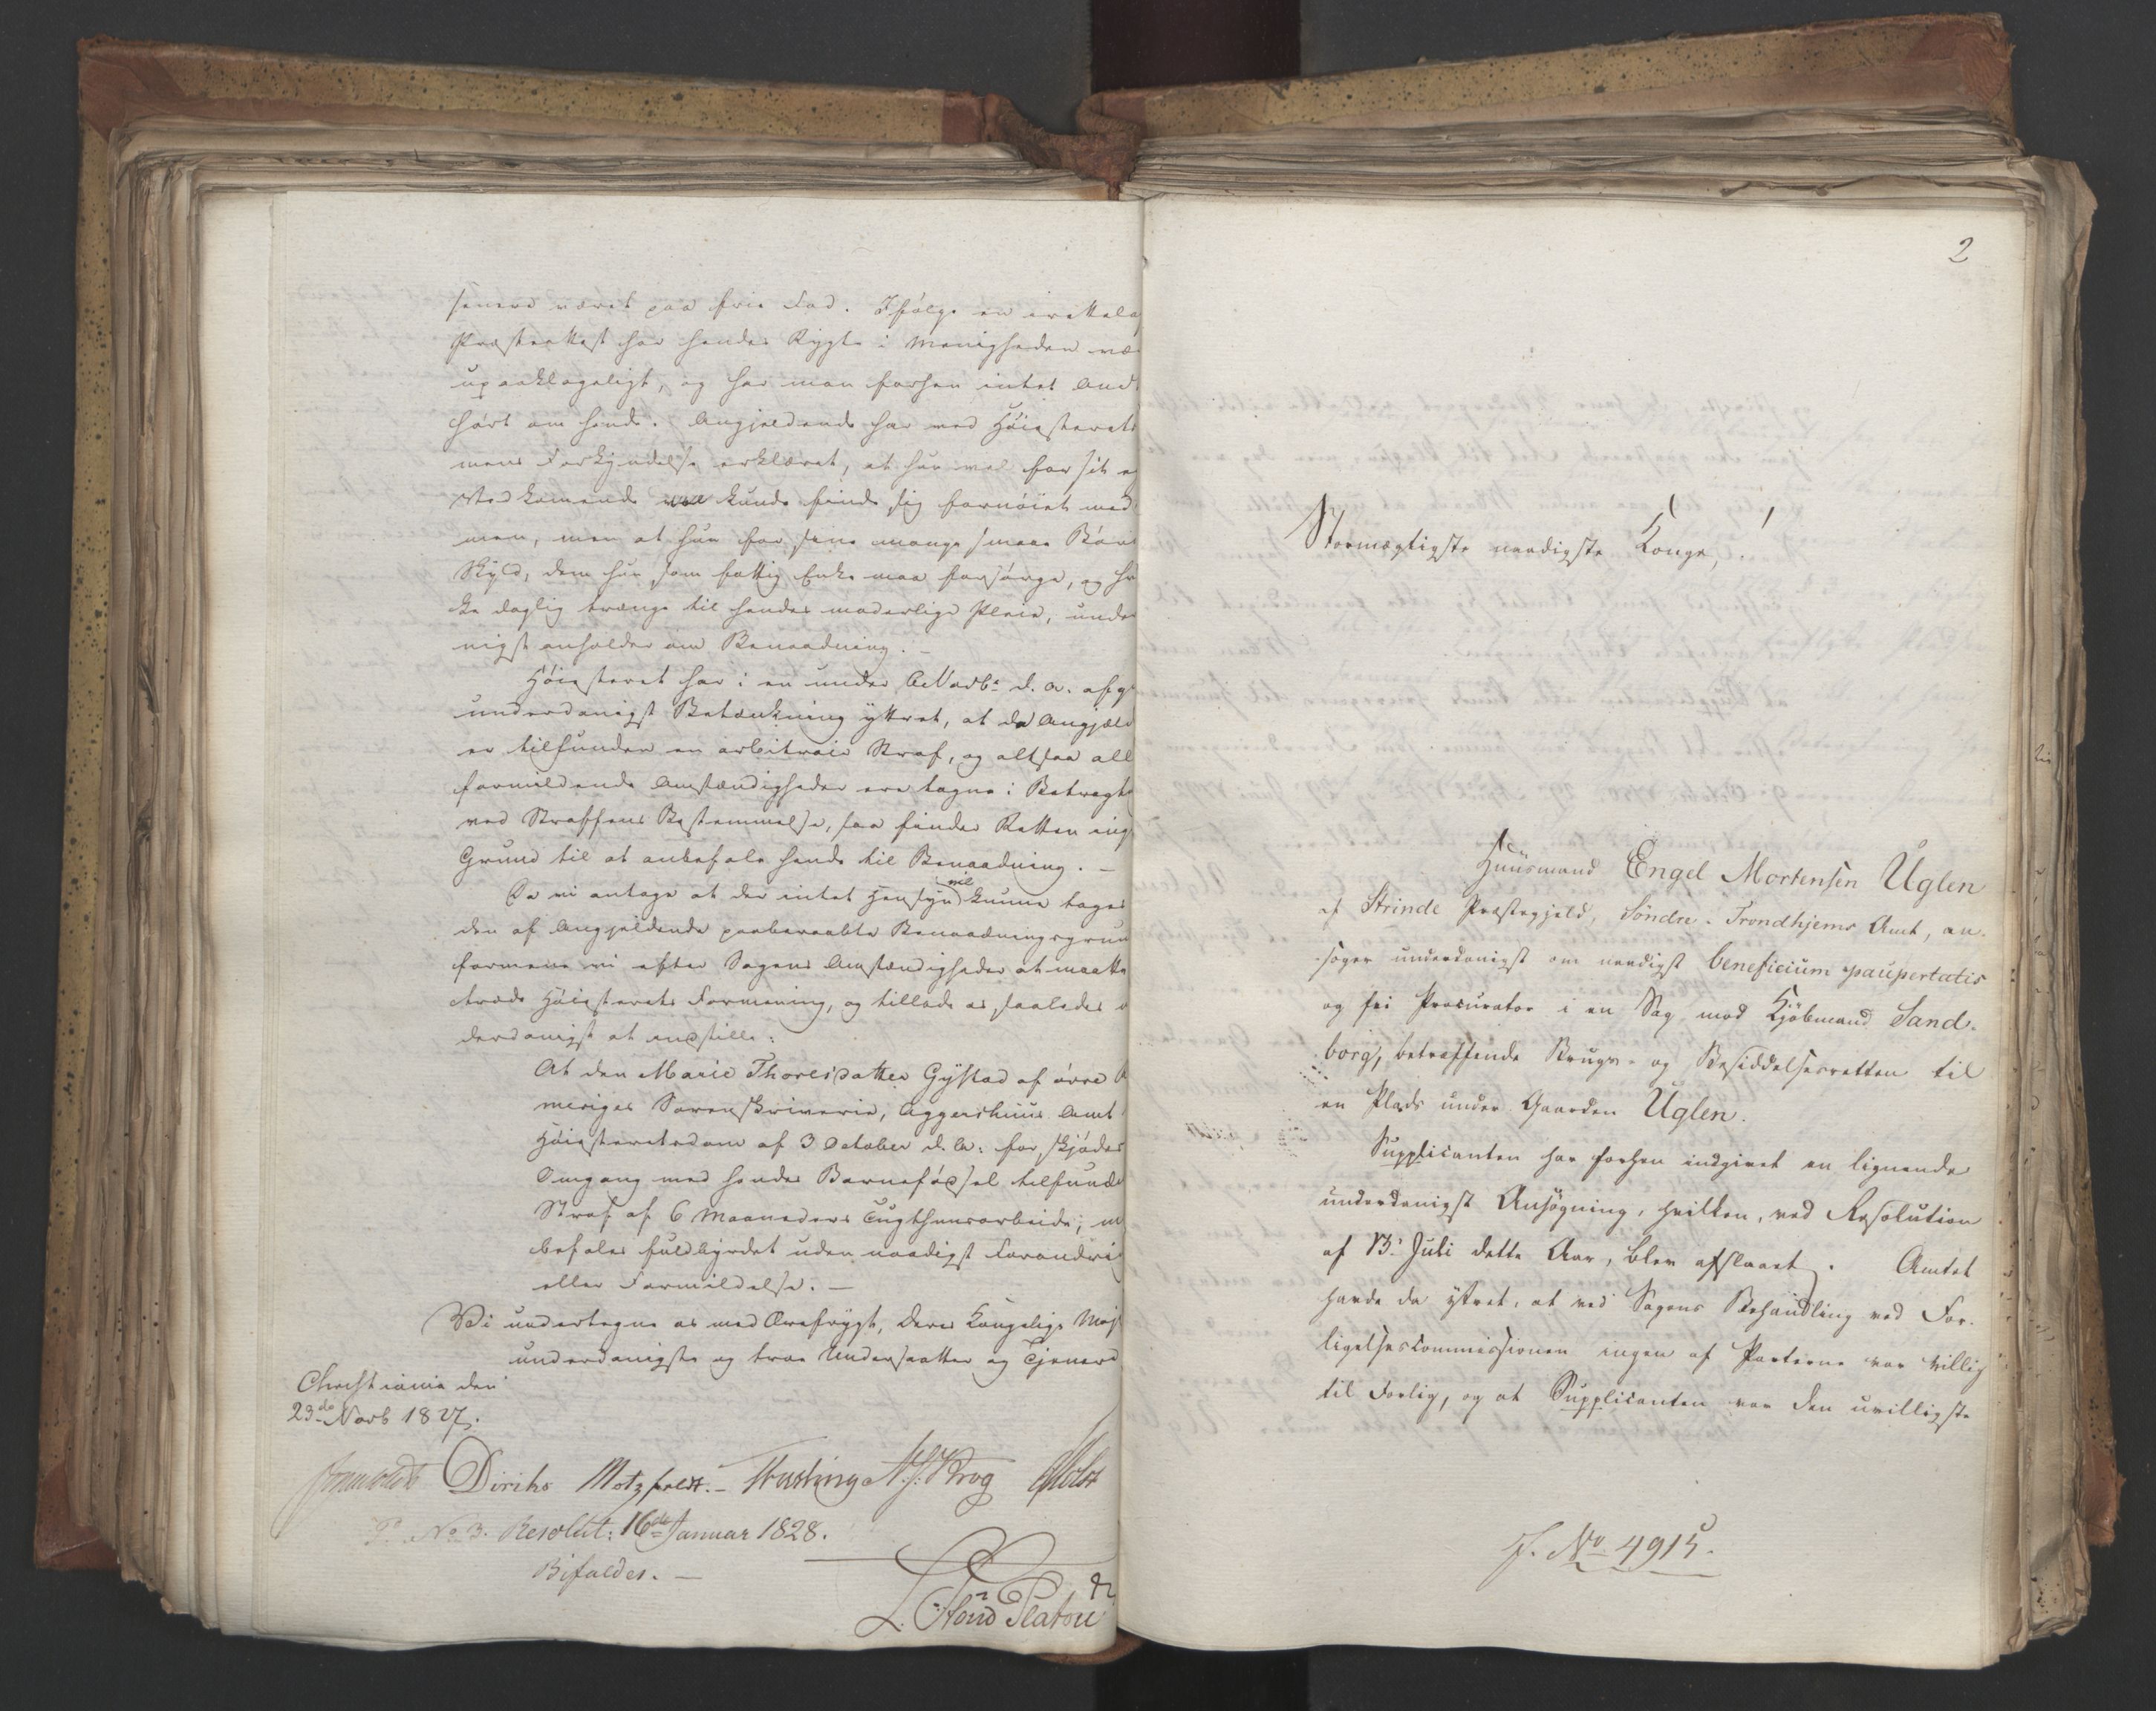 senere været paa frie Fod. Ifølge en irettela
Præsteattest har hendes Rygte i Menigheden væ
upaaklageligt, og har man forhen intet Ond
hørt om hende. Angjeldende har ved Høiesterets
mens Forkyndelse erklæret, at hun vel for sit e
Vedkomende kunde finde sig fornøiet med
men, men at hun for sine mange smaae Børn
Skyld, dem hun som fattig Enke maa forsørge, og hv
ke daglig trænge til hendes moderlige Pleie, under
nigst anholder om Benaadning. –
Høiesteret har i en under 6 Novbr. d. A. afg
underdanigst Betænkning yttret, at da Angjæld
er tilfunden en arbitrair Straf, og altsaa all
formildende Omstændigheder ere tagne i Betragt
ved Straffens Bestemmelse, saa finder Retten ing
Grund til at anbefale hende til Benaadning. –
Da vi antage at der intet Hensyn vil kunne tages
den af Angjeldende paaberaabte Benaadningsgrun
formene vi efter Sagens Omstændigheder at maatte
træde Høiesterets Formening, og tillade os saaledes
derdanigst at indstille:
At den Marie Thoresdatter Gystad af øvre
meriges Sorenskriverie, Aggershuus Amt
Høiesteretsdom af 3 October d. A. for skjødes
Omgang med hendes Barnefødsel tilfunde
Straf af 6 Maaneders Tugthuusarbeide,
befales fuldbyrdet uden naadigst Forandri
eller Formildelse. –
Vi undertegne os med Ærefrygt, Deres Kongelige Maj
underdanigste og troe Undersaatter og Tjenere
Christiania den
23de Novb 1827.
Diriks Motzfeldt. – N. J. Krog Holst
No 3. Resolut: 16de Januar 1828.
Bifaldes. –
L. Stoud Platou
2
Stormægtigste naadigste Konge!
Huusmand Engel Mortensen Uglen
af Strinde Præstegjeld, Søndre-Trondhjems Amt, an-
søger underdanigst om naadigst beneficium paupertatis
og fri Procurator i en Sag mod Kjøbmand Sand-
borg, betræffende Brugs- og Besiddelsesretten til
en Plads under Gaarden Uglen.
Supplicanten har forhen indgivet en lignende
underdanigst Ansøgning, hvilken, ved Resolution
af 13. Juli dette Aar, blev afslaaet. Amtet
havde da yttret, at ved Sagens Behandling ved For-
ligelsescommissionen ingen af Parterne var villig
til Forlig, og at Supplicanten var den uvilligste
J. No 4915.